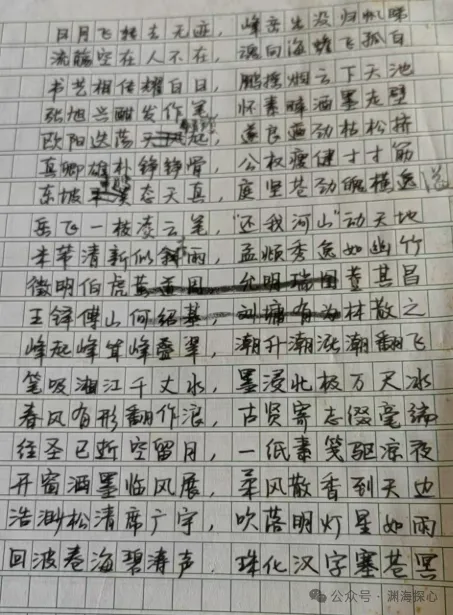 日月飞转去无迹，峰峦出没归帆睇
流觞空在人不在，魂向海蟾飞孤白
书艺相传耀白日，鹏摇烟云下天池
张旭兴酣发作笔，怀素醉洒墨龙壁
欧阳迭荡起，遂良遒劲枯松挤
真卿雄朴铮铮骨，公权瘦健寸寸筋
东坡态天真，庭坚苍劲魄横逸
岳飞一枝凌云笔，“还我河山”动天地
米芾清新似雨，孟頫秀逸如幽竹
徵明伯虎董其昌
王铎傅山何绍基，刘墉有为林散之
峰起峰耸峰叠翠，潮升潮涨潮翻飞
笔吸湘江千丈水，墨浸北极万天冰
春风有形翻作浪，古贤寄志缀毫端
经圣已逝空留月，一纸素笺驱凉夜
开窗洒墨临风展，采风散香到天边
浩渺松清席广宇，吹落明灯星如雨
回波卷海碧涛声，珠化汉字塞苍冥
公众号·渊海探心